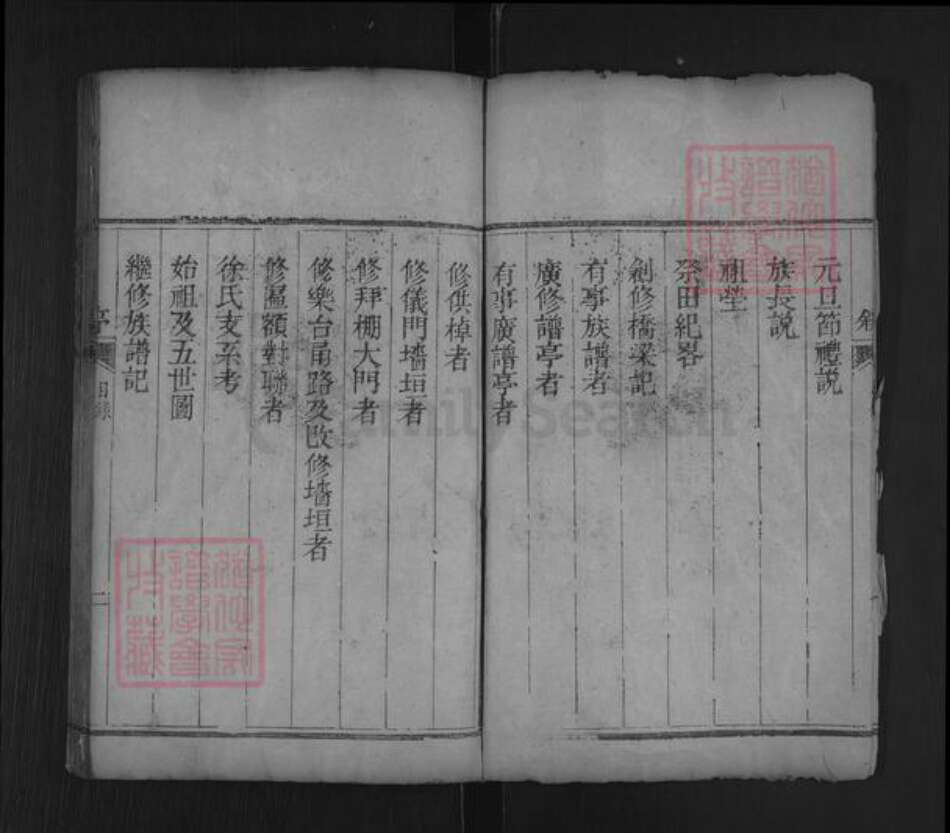 元旦節禮説
族長説
祖塋
祭田紀畧
創修橋梁記
有事族譜者
廣修譜亭者
有事廣譜亭者
修供棹者
修儀門墻垣者
修拜棚大門者
修樂台甬路及改修墻垣者
修匾額對聯者
徐氏支系考
始祖及五世圖
繼修族譜記
亭
目錄
二
FamilySearch